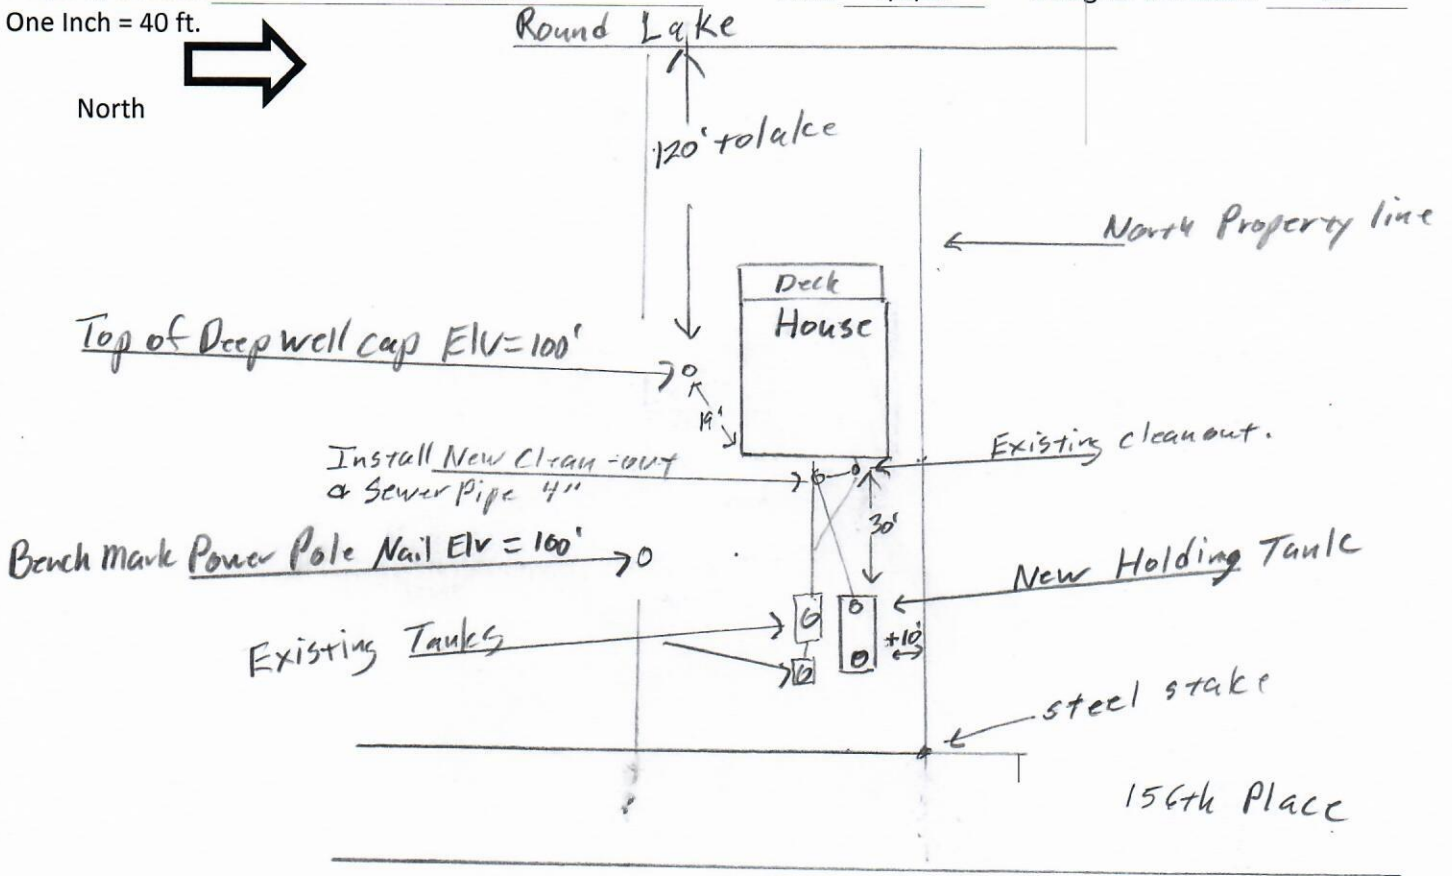 One Inch = 40 ft.
North
Round Lake
120' to lake
North Property line
Deck
House
Top of Deep well cap Elv=100'
19'
Existing cleanout.
Install New Clean-out
& Sewer Pipe 4"
30'
Bench Mark Power Pole Nail Elv = 100'
New Holding Tank
Existing Tanks
+10'
steel stake
156th Place